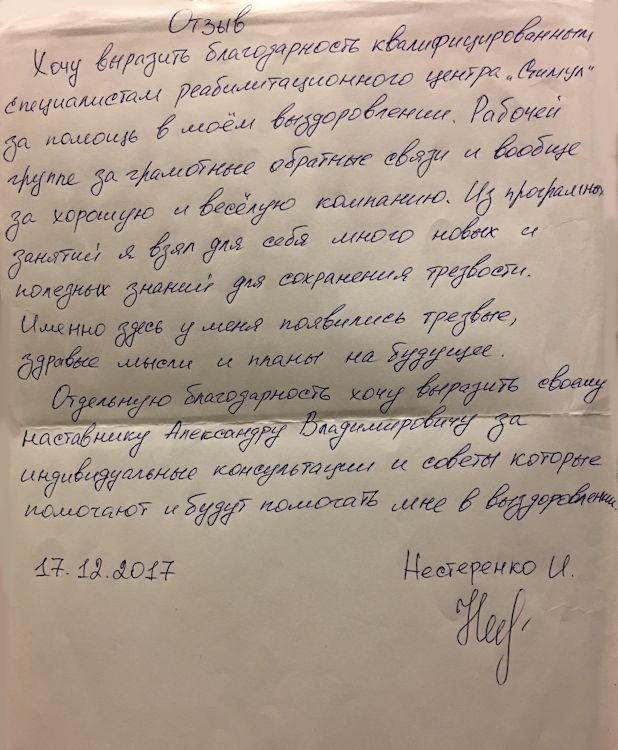 Отзыв
Хочу выразить благодарность квалифицированным
специалистам реабилитационного центра „Стимул"
за помощь в моём выздоровлении. Рабочей
группе за грамотные обратные связи и вообще
за хорошую и весёлую компанию. Из програмных
занятий я взял для себя много новых и
полезных знаний для сохранения трезвости.
Именно здесь у меня появились трезвые,
здравые мысли и планы на будущее.
Отдельную благодарность хочу выразить своему
наставнику Александру Владимировичу за
индивидуальные консультации и советы которые
помогают и будут помогать мне в выздоровлении.
17.12.2017 Нестеренко И.